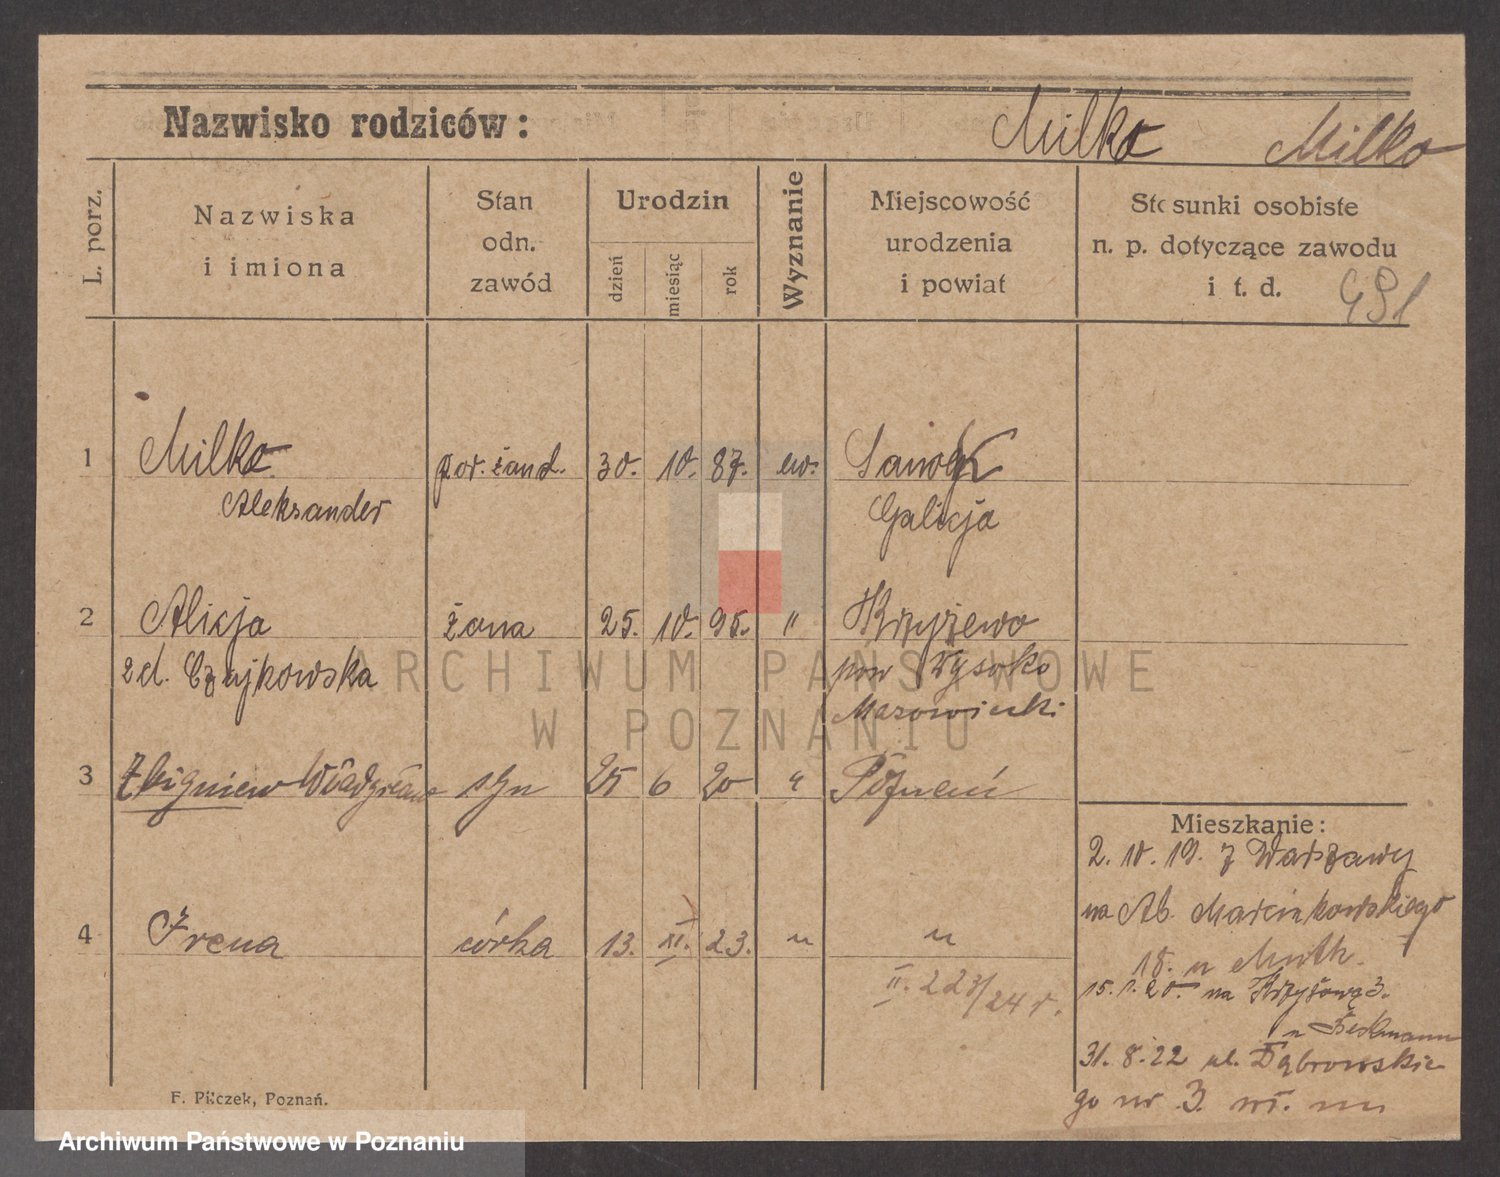 Nazwisko rodziców: Milko Milko
L. porz.
Nazwiska i imiona
Stan odn. zawód
Urodzin
dzień miesiąc rok
Wyznanie
Miejscowość urodzenia i powiat
Stosunki osobiste n. p. dotyczące zawodu i t. d.
491
1 Milko por. żand. 30. 10. 87. ew. Sanok
Aleksander Galicja
2 Alicja żona 25. 10. 95. " Krzyżewo
zd. Czajkowska pow Wysoko
Mazowiecki
3 Zbigniew Władysław syn 25 6 20 " Poznań
4 Irena córka 13. XI. 23. " "
II. 223/24 r.
Mieszkanie:
2. 10. 19. z Warszawy
na Ab. Marcinkowskiego
18. u
15. 1. 20. na Krzyżową 3.
u
31. 8. 22 ul. Dąbrowskie
go nr 3. wł. m
F. Pilczek, Poznań.
ARCHIWUM PAŃSTWOWE
W POZNANIU
Archiwum Państwowe w Poznaniu